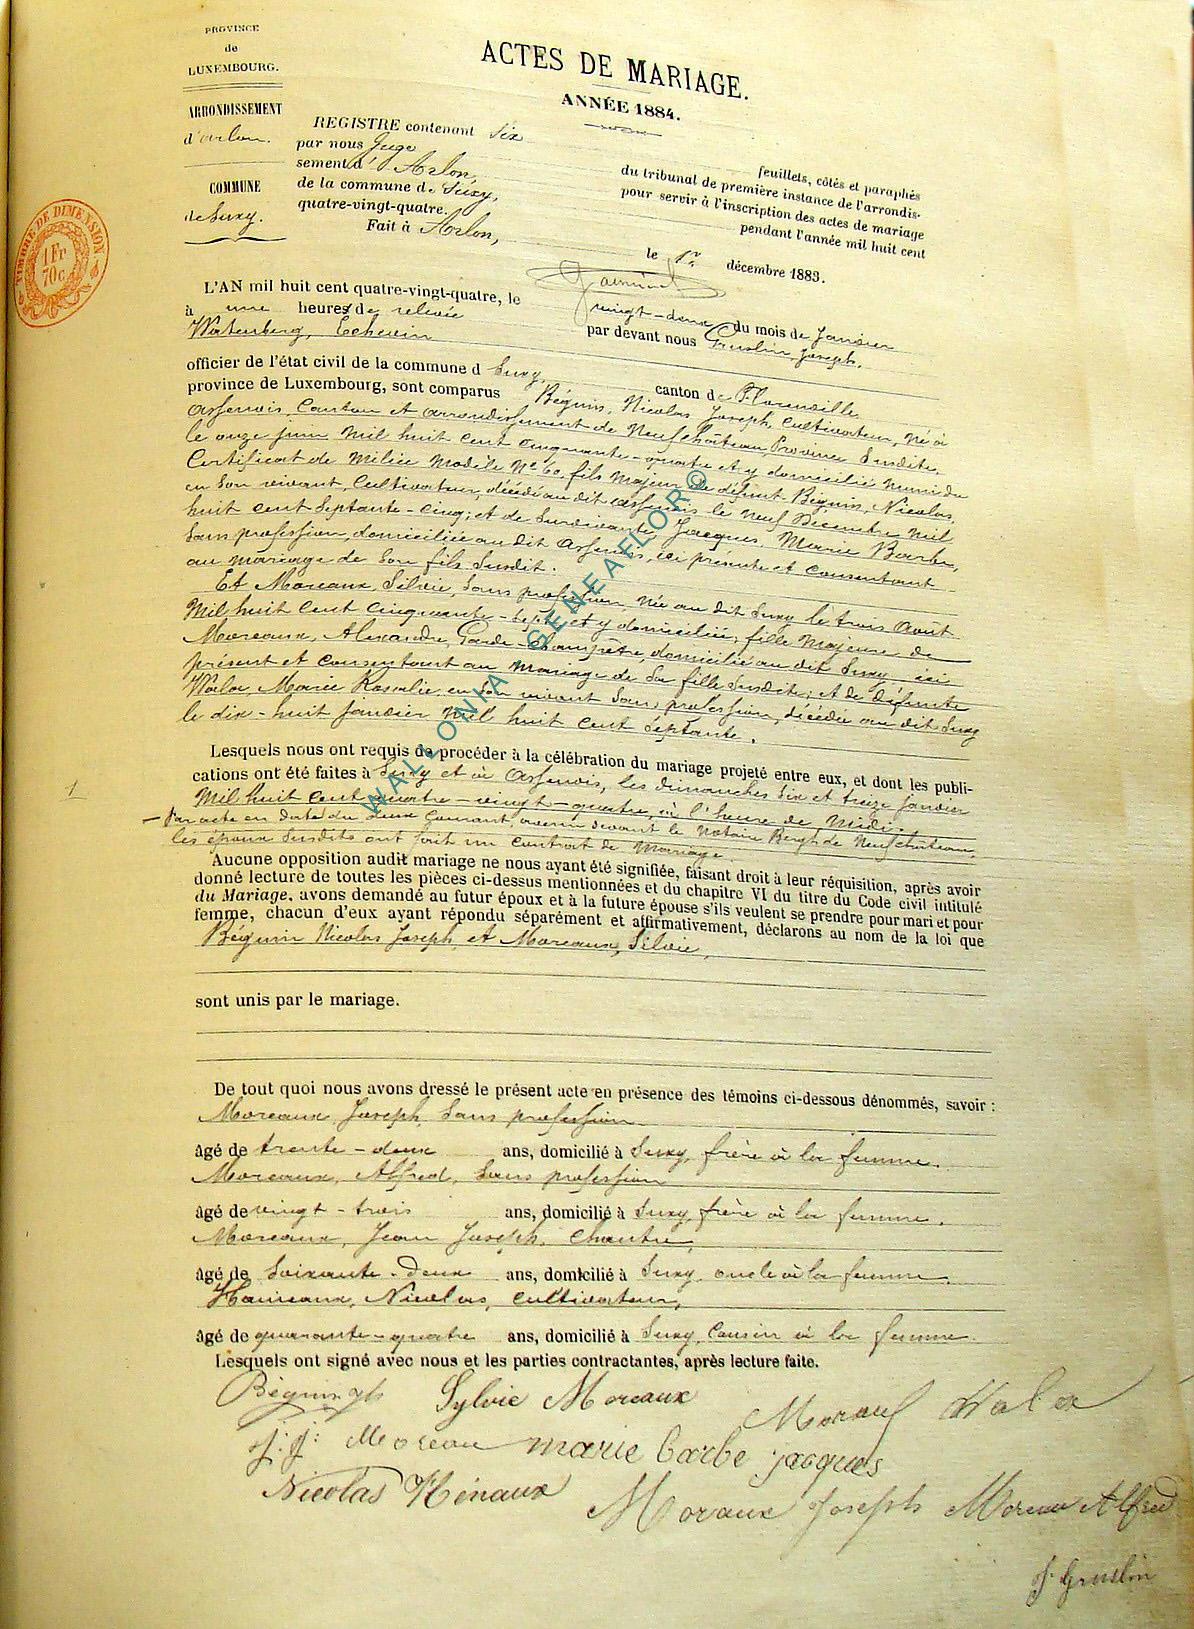 PROVINCE
de
LUXEMBOURG.
ARRONDISSEMENT
d'arlon.
COMMUNE
de Suxy.
TIMBRE DE DIMENSION
1 Fr
70 c
ACTES DE MARIAGE.
ANNÉE 1884.
REGISTRE contenant Six feuillets, côtés et paraphés
par nous Juge du tribunal de première instance de l'arrondis-
sement d' Arlon, pour servir à l'inscription des actes de mariage
de la commune de Suxy, pendant l'année mil huit cent
quatre-vingt-quatre.
Fait à Arlon, le 1er décembre 1883.
L'AN mil huit cent quatre-vingt-quatre, le vingt-deux du mois de Janvier
à une heures de relevée par devant nous Gruslin, Joseph,
Watenberg, Echevin
officier de l'état civil de la commune d Suxy, canton de Florenville
province de Luxembourg, sont comparus Béguin, Nicolas Joseph, Cultivateur, né à
Assenois, Canton et arrondissement de Neufchâteau, Province Susdite,
le onze juin Mil huit cent cinquante-quatre et y domicilié muni du
Certificat de Milice Modèle No 60, fils Majeur de défunt Béguin, Nicolas,
en Son vivant, Cultivateur, décédé au dit Assenois le neuf Décembre Mil
huit cent Septante-Cinq; et de Survivante Jacques, Marie Barbe,
Sans profession, domiciliée au dit Assenois, ici présente et consentant
au mariage de Son fils Susdit.
Et Moreaux, Silvie, Sans profession, née au dit Suxy le trois Août
Mil huit Cent Cinquante-Sept, et y domiciliée; fille Majeure de
Moreaux, Alexandre, Garde-champêtre, domicilié au dit Suxy, ici
présent et consentant au Mariage de Sa fille Susdite; et de défunte
Wala, Marie Rosalie, en Son vivant Sans profession, décédée au dit Suxy
le dix-huit Janvier Mil huit cent Septante.
Lesquels nous ont requis de procéder à la célébration du mariage projeté entre eux, et dont les publi-
cations ont été faites à Suxy et à Assenois, les dimanches Six et treize Janvier
1
Mil huit Cent quatre-vingt-quatre, à l'heure de Midi.
— Par acte en date du deux Courant, avenu devant le Notaire Bergh de Neufchâteau,
les époux Susdits ont fait un Contrat de Mariage.
Aucune opposition audit mariage ne nous ayant été signifiée, faisant droit à leur réquisition, après avoir
donné lecture de toutes les pièces ci-dessus mentionnées et du chapitre VI du titre du Code civil intitulé
du Mariage, avons demandé au futur époux et à la future épouse s'ils veulent se prendre pour mari et pour
femme, chacun d'eux ayant répondu séparément et affirmativement, déclarons au nom de la loi que
Béguin Nicolas Joseph, et Moreaux, Silvie,
sont unis par le mariage.
De tout quoi nous avons dressé le présent acte en présence des témoins ci-dessous dénommés, savoir :
Moreaux, Joseph, Sans profession
âgé de trente-deux ans, domicilié à Suxy, frère à la femme.
Moreaux, Alfred, Sans profession
âgé de vingt-trois ans, domicilié à Suxy, frère à la femme.
Moreaux, Jean Joseph, Chantre,
âgé de Soixante-Deux ans, domicilié à Suxy, oncle à la femme
Haineaux, Nicolas, Cultivateur,
âgé de quarante-quatre ans, domicilié à Suxy, Cousin à la femme.
Lesquels ont signé avec nous et les parties contractantes, après lecture faite.
Béguin Sylvie Moreaux Moraux Wala
J: J: Moreau marie barbe jacques
Nicolas Hénaux Moraux Joseph Moreau Alfred
J. Gruslin
WALLONIA GENEAFLOR©